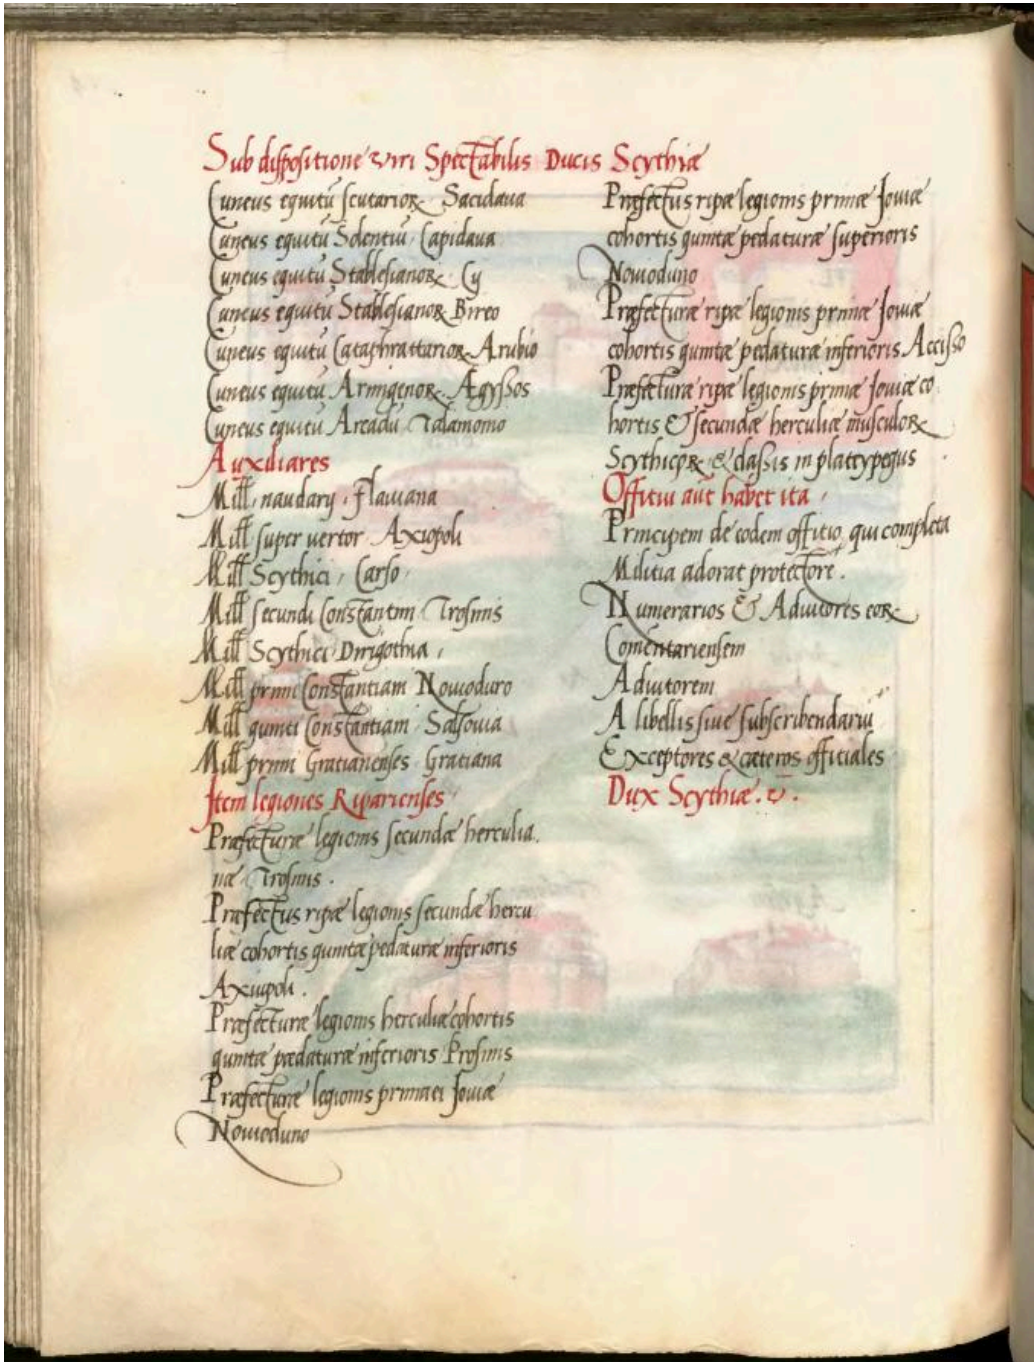 Sub dispositione viri Spectabilis Ducis Scythiæ
Cuneus equitū scutarioꝝ Sacidaua
Cuneus equitū Solentiū Capidaua
Cuneus equitū Stablesianoꝝ Cy
Cuneus equitū Stablesianoꝝ Bireo
Cuneus equitū Cataphrattarioꝝ Arubio
Cuneus equitū Armigeroꝝ Ægyssos
Cuneus equitū Arcadū Talamomo
Auxiliares
Mill. naudarij. Flauiana
Mill super vertor Axiopoli
Mill Scythici, Carso,
Mill secundi Constantini Trosmis
Mill Scythici Dirigothia,
Mill primi Constantiani Nouioduro
Mill quinti Constantiani Salsouia
Mill primi Gratianenses Gratiana
Item legiones Riparienses
Præfecturæ legionis secundæ herculia.
næ Trosmis.
Præfectus ripæ legionis secundæ hercu
liæ cohortis quintæ pedaturæ inferioris
Axiupoli.
Præfecturæ legionis herculiæ cohortis
quintæ pædaturæ inferioris Prosmis
Præfecturæ legionis primaei Jouiæ
Nouioduno
Præfectus ripæ legionis primæ Jouiæ
cohortis quintæ pedaturæ superioris
Nouioduno
Præfecturæ ripæ legionis primæ Jouiæ
cohortis quintæ pedaturæ inferioris Accisso
Præfecturæ ripæ legionis primæ Jouiæ co.
hortis & secundæ herculiæ musculoꝝ
Scythicoꝝ & classis in plateypegus
Offitiū aut habet ita,
Principem de eodem offitio, qui completa
Militia adorat protectore.
Numerarios & Adiutores eoꝝ
Comentariensem
Adiutorem
A libellis siue subscribendariū
Exceptores & cæteros offitiales
Dux Scythiæ. v.